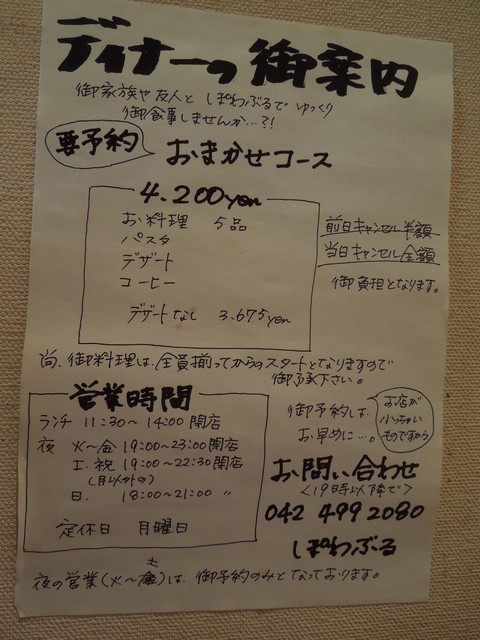 ディナーの御案内
御家族や友人と しぽわぶるで ゆっくり
御食事しませんか…?!
要予約 おまかせコース
4.200yen
お料理 5品
パスタ
デザート
コーヒー
デザートなし 3.675yen
前日キャンセル半額
当日キャンセル全額
御負担となります。
尚、御料理は、全員揃ってからのスタートとなりますので
御了承下さい。
営業時間
ランチ 11:30~14:00 閉店
夜 火~金 19:00~23:00 閉店
土.祝 19:00~22:30 閉店
(月以外の)
日. 18:00~21:00 〃
定休日 月曜日
御予約は、
お早めに…。
お店が
小っちゃい
ものですから
お問い合わせ
<19時以降で>
042 499 2080
しぽわぶる
夜の営業(火~土)は、御予約のみとなっております。